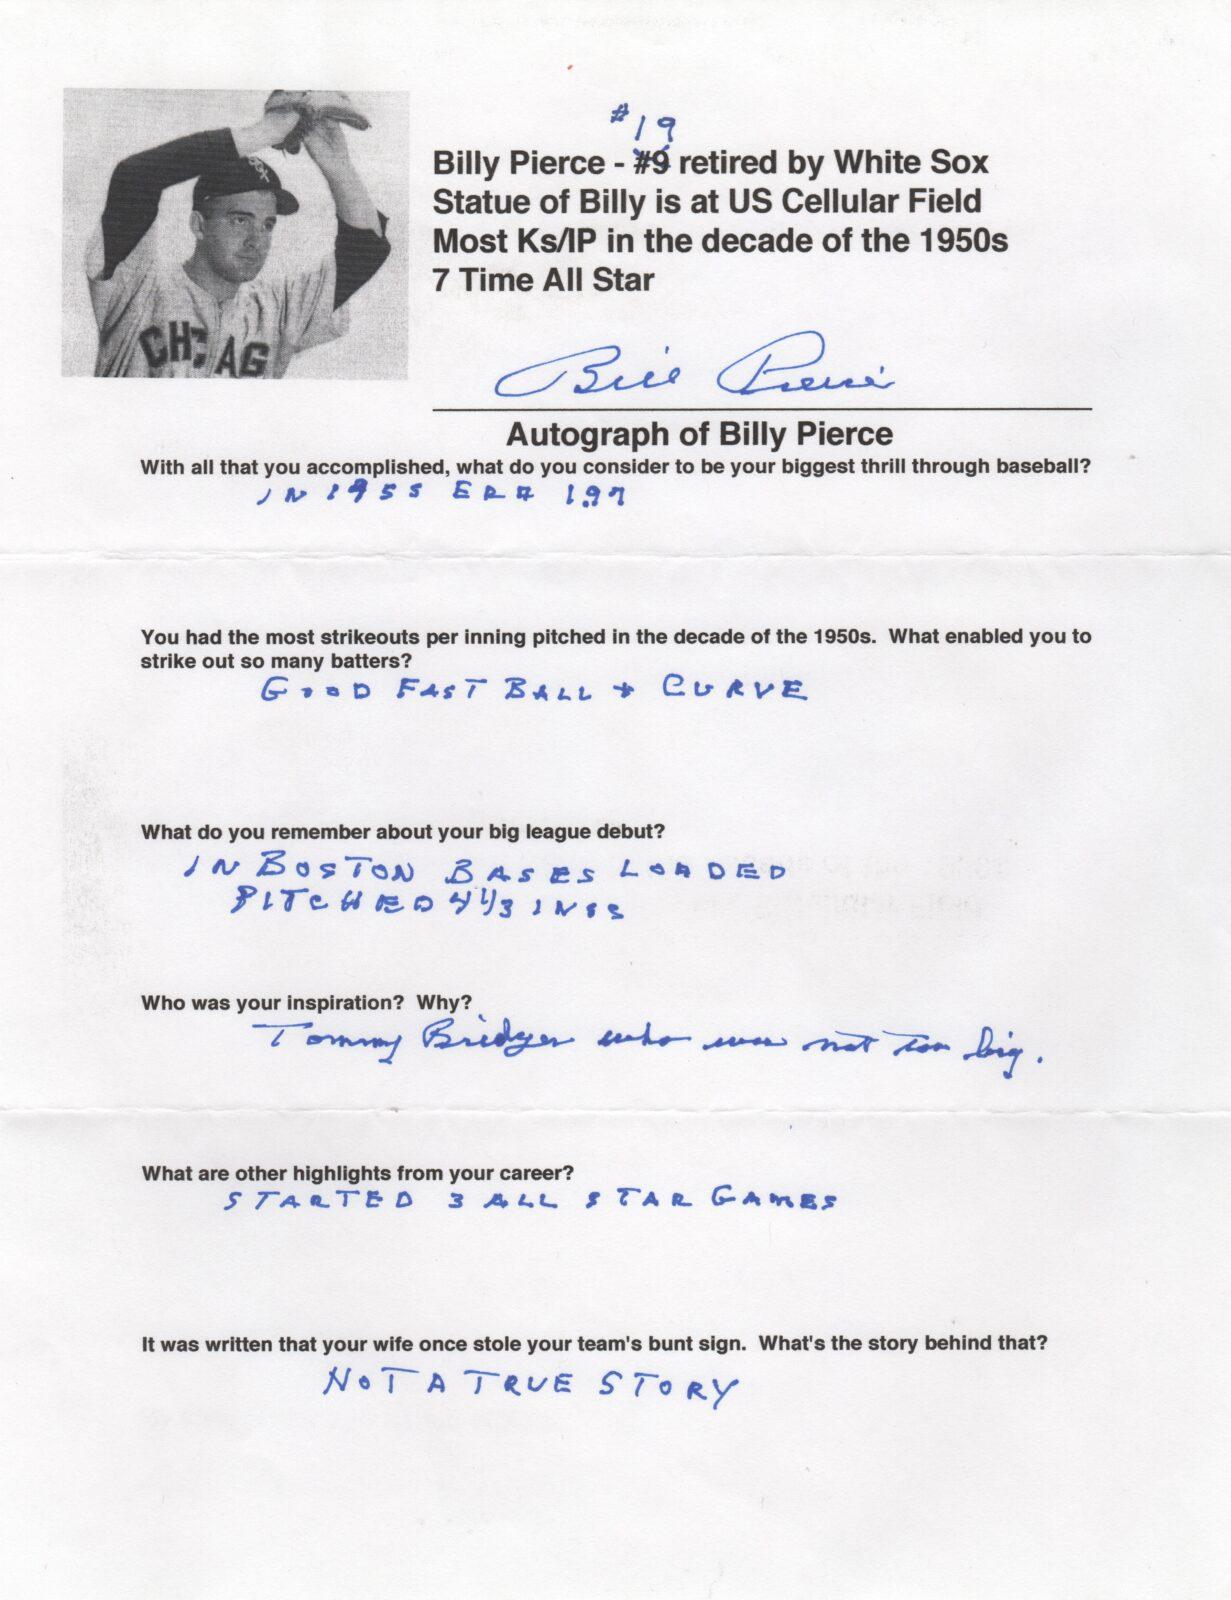 SOX
CHICAG
#19
Billy Pierce - #9 retired by White Sox
Statue of Billy is at US Cellular Field
Most Ks/IP in the decade of the 1950s
7 Time All Star
Bill Pierce
Autograph of Billy Pierce
With all that you accomplished, what do you consider to be your biggest thrill through baseball?
IN 1955 ERA 1.97
You had the most strikeouts per inning pitched in the decade of the 1950s. What enabled you to
strike out so many batters?
GOOD FAST BALL + CURVE
What do you remember about your big league debut?
IN BOSTON BASES LOADED
PITCHED 4 1/3 INGS
Who was your inspiration? Why?
Tommy Bridges who was not too big.
What are other highlights from your career?
STARTED 3 ALL STAR GAMES
It was written that your wife once stole your team's bunt sign. What's the story behind that?
NOT A TRUE STORY